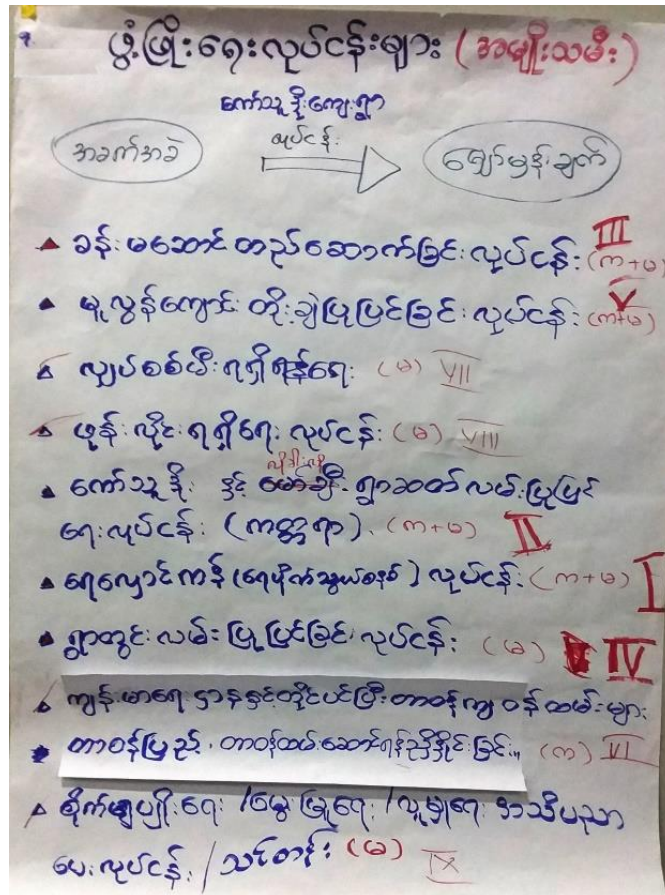 ဖွံ့ဖြိုးရေးလုပ်ငန်းများ (အမျိုးသမီး)
ကော်သူဒိုးကျေးရွာ
အခက်အခဲ လုပ်ငန်း မျှော်မှန်းချက်
ခန်းမဆောင် တည်ဆောက်ခြင်း လုပ်ငန်း (က+မ) III
မူလွန်ကျောင်း တိုးချဲ့ပြုပြင်ခြင်း လုပ်ငန်း (က+မ) V
လျှပ်စစ်မီး ရရှိရန်ရေး (မ) VII
ဖုန်းလိုင်း ရရှိရေး လုပ်ငန်း (မ) VIII
ကော်သူဒိုး နှင့် ရွာဆက်လမ်း ပြုပြင်
ရေးလုပ်ငန်း (ကတ္တရာ) (က+မ) II
ရေလှောင်ကန် (ရေပိုက်သွယ်စနစ်) လုပ်ငန်း (က+မ) I
ရွာတွင်းလမ်း ပြုပြင်ခြင်း လုပ်ငန်း (မ) IV
ကျန်းမာရေး ဌာနနှင့်တိုင်ပင်ပြီး တာဝန်ကျ ဝန်ထမ်းများ
တာဝန်ပြည့် တာဝန်ထမ်းဆောင်ရန်ညှိနှိုင်းခြင်း (က) VI
စိုက်ပျိုးရေး / မွေးမြူရေး / လူမှုရေး အသိပညာ
ပေးလုပ်ငန်း / သင်တန်း (မ) IX